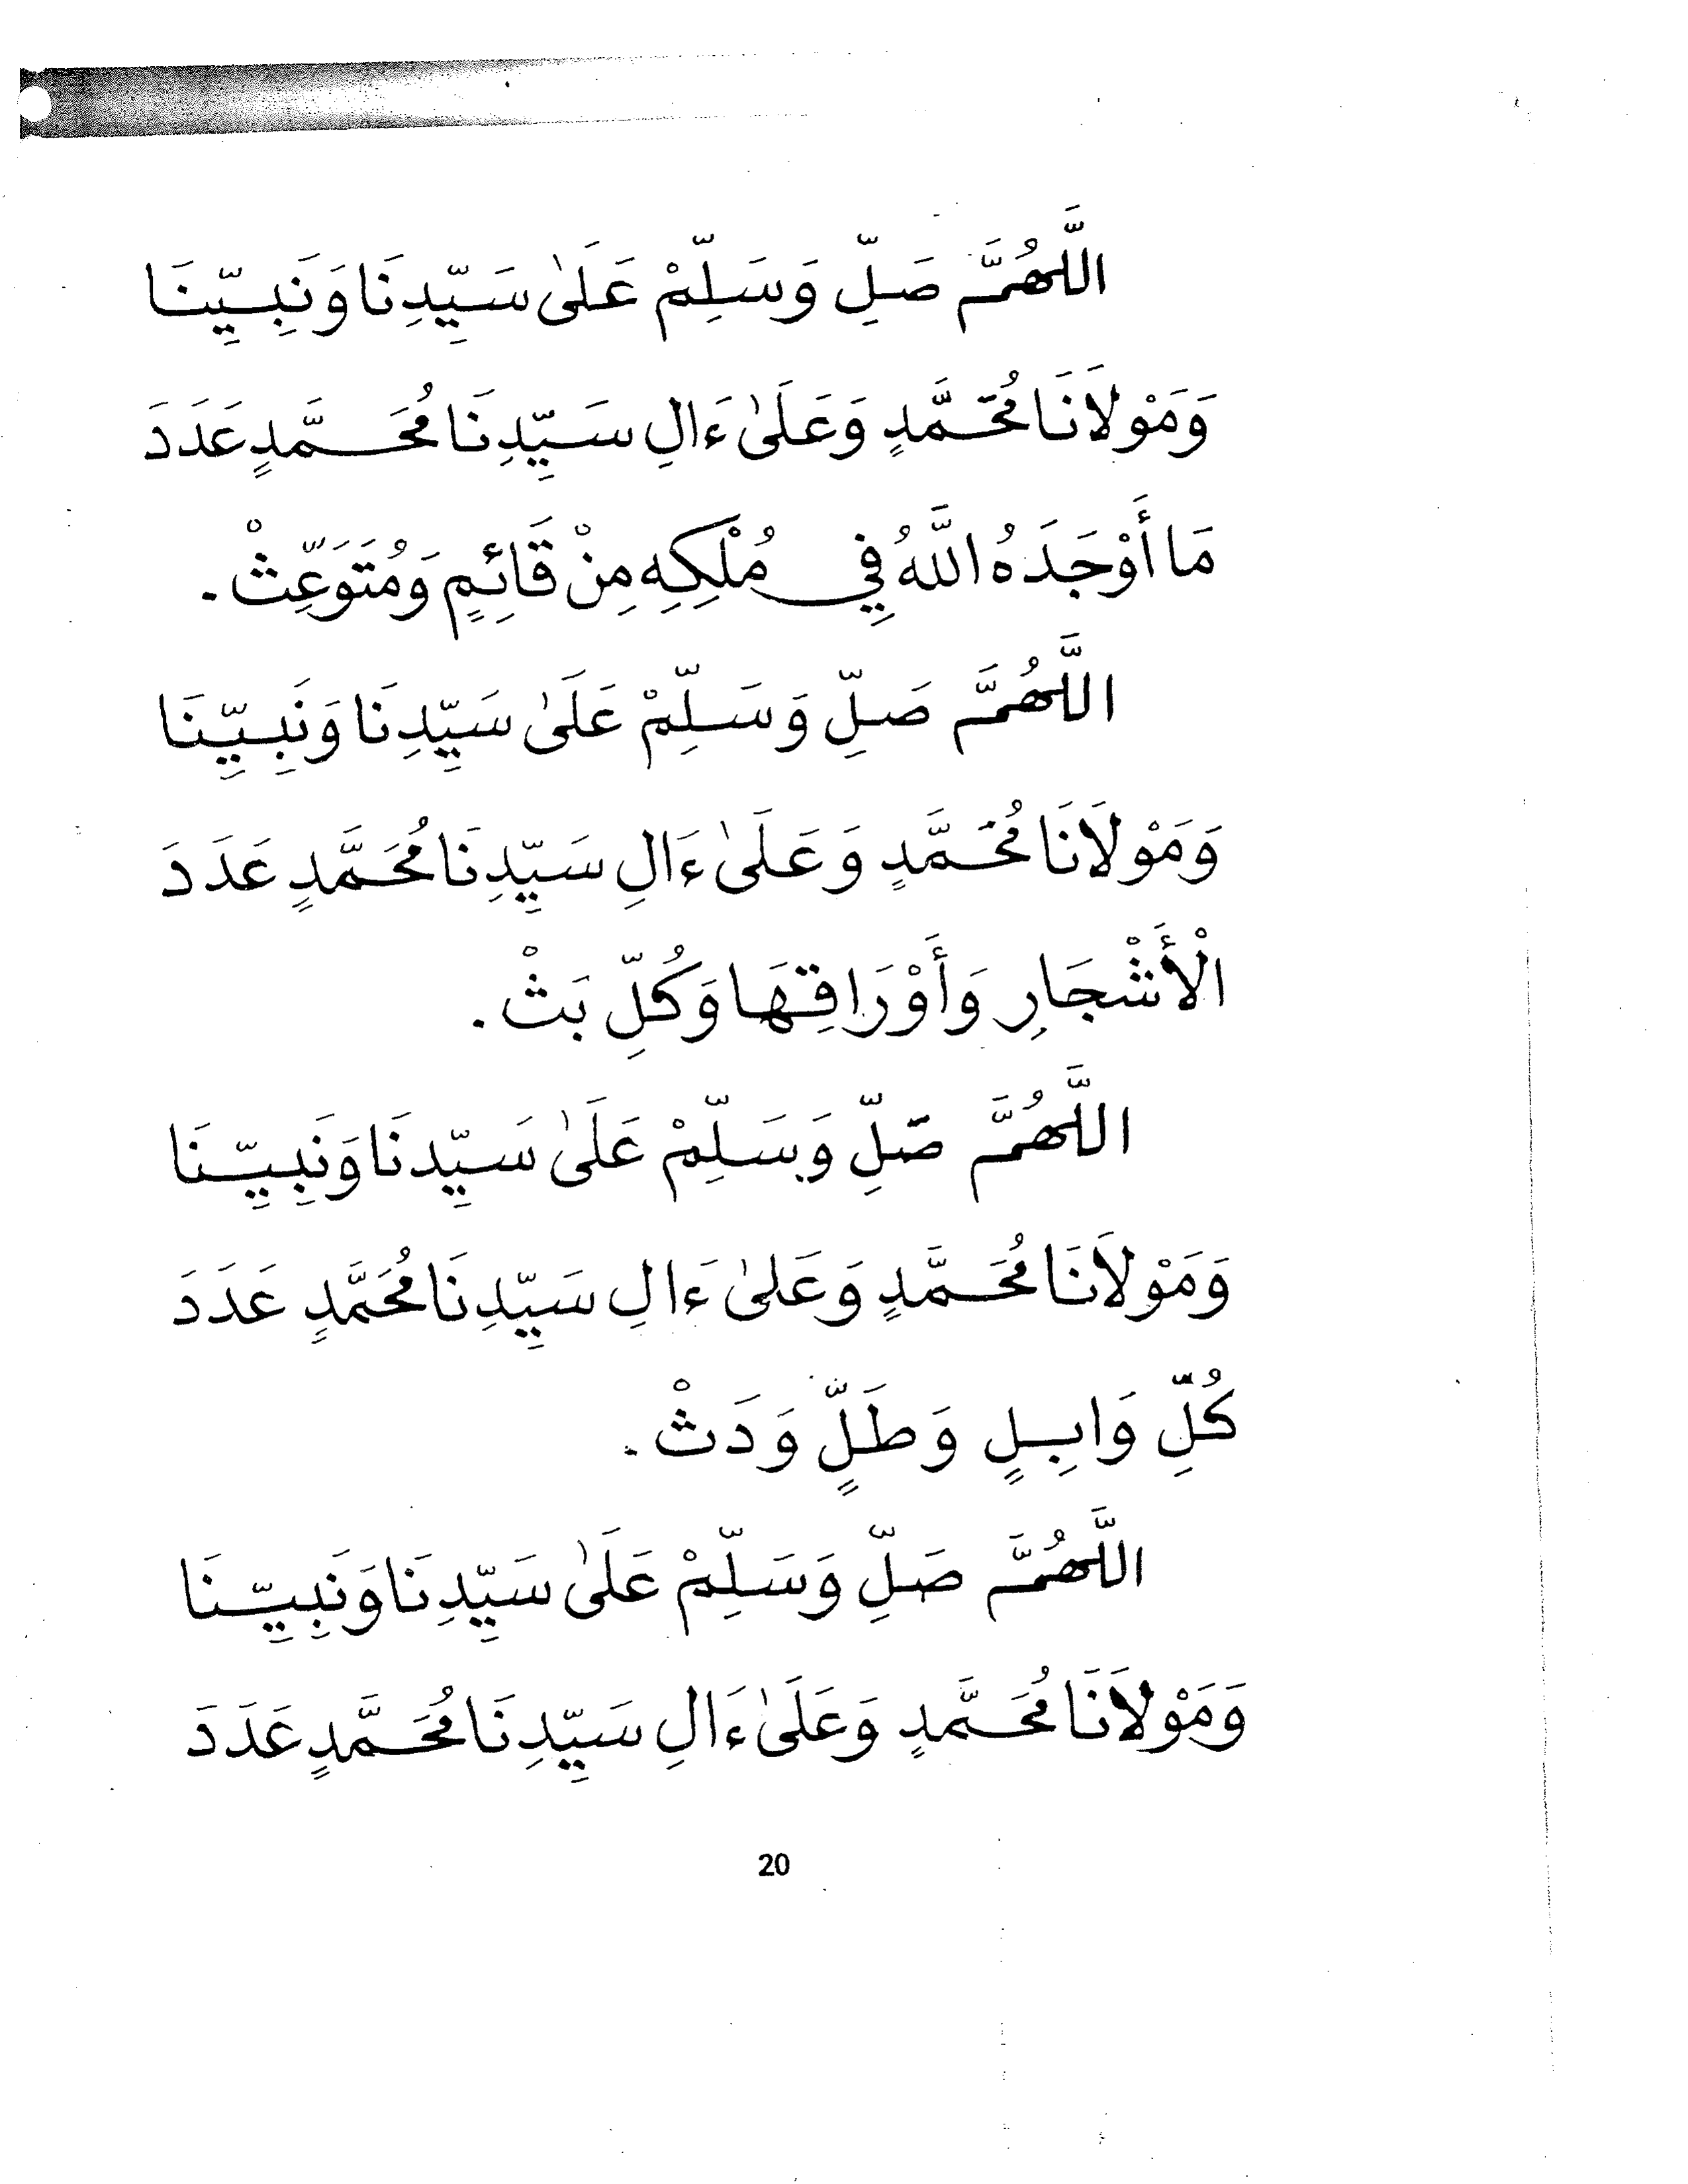 اللَّهُمَّ صَلِّ وَسَلِّمْ عَلَىٰ سَيِّدِنَا وَنَبِيِّنَا
وَمَوْلَانَا مُحَمَّدٍ وَعَلَىٰ ءَالِ سَيِّدِنَا مُحَمَّدٍ عَدَدَ
مَا أَوْجَدَهُ اللَّهُ فِي مُلْكِهِ مِنْ قَائِمٍ وَمُتَوَعِّثْ .
اللَّهُمَّ صَلِّ وَسَلِّمْ عَلَىٰ سَيِّدِنَا وَنَبِيِّنَا
وَمَوْلَانَا مُحَمَّدٍ وَعَلَىٰ ءَالِ سَيِّدِنَا مُحَمَّدٍ عَدَدَ
الْأَشْجَارِ وَأَوْرَاقِهَا وَكُلِّ بَثْ .
اللَّهُمَّ صَلِّ وَسَلِّمْ عَلَىٰ سَيِّدِنَا وَنَبِيِّنَا
وَمَوْلَانَا مُحَمَّدٍ وَعَلىٰ ءَالِ سَيِّدِنَا مُحَمَّدٍ عَدَدَ
كُلِّ وَابِلٍ وَطَلٍّ وَدَثْ .
اللَّهُمَّ صَلِّ وَسَلِّمْ عَلَىٰ سَيِّدِنَا وَنَبِيِّنَا
وَمَوْلَانَا مُحَمَّدٍ وَعَلَىٰ ءَالِ سَيِّدِنَا مُحَمَّدٍ عَدَدَ
20